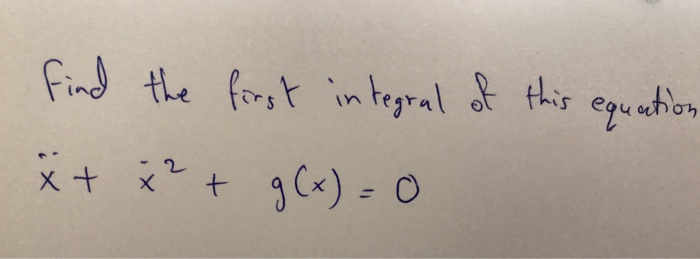 Find the first integral of this equation
ẍ + ẋ² + g(x) = 0